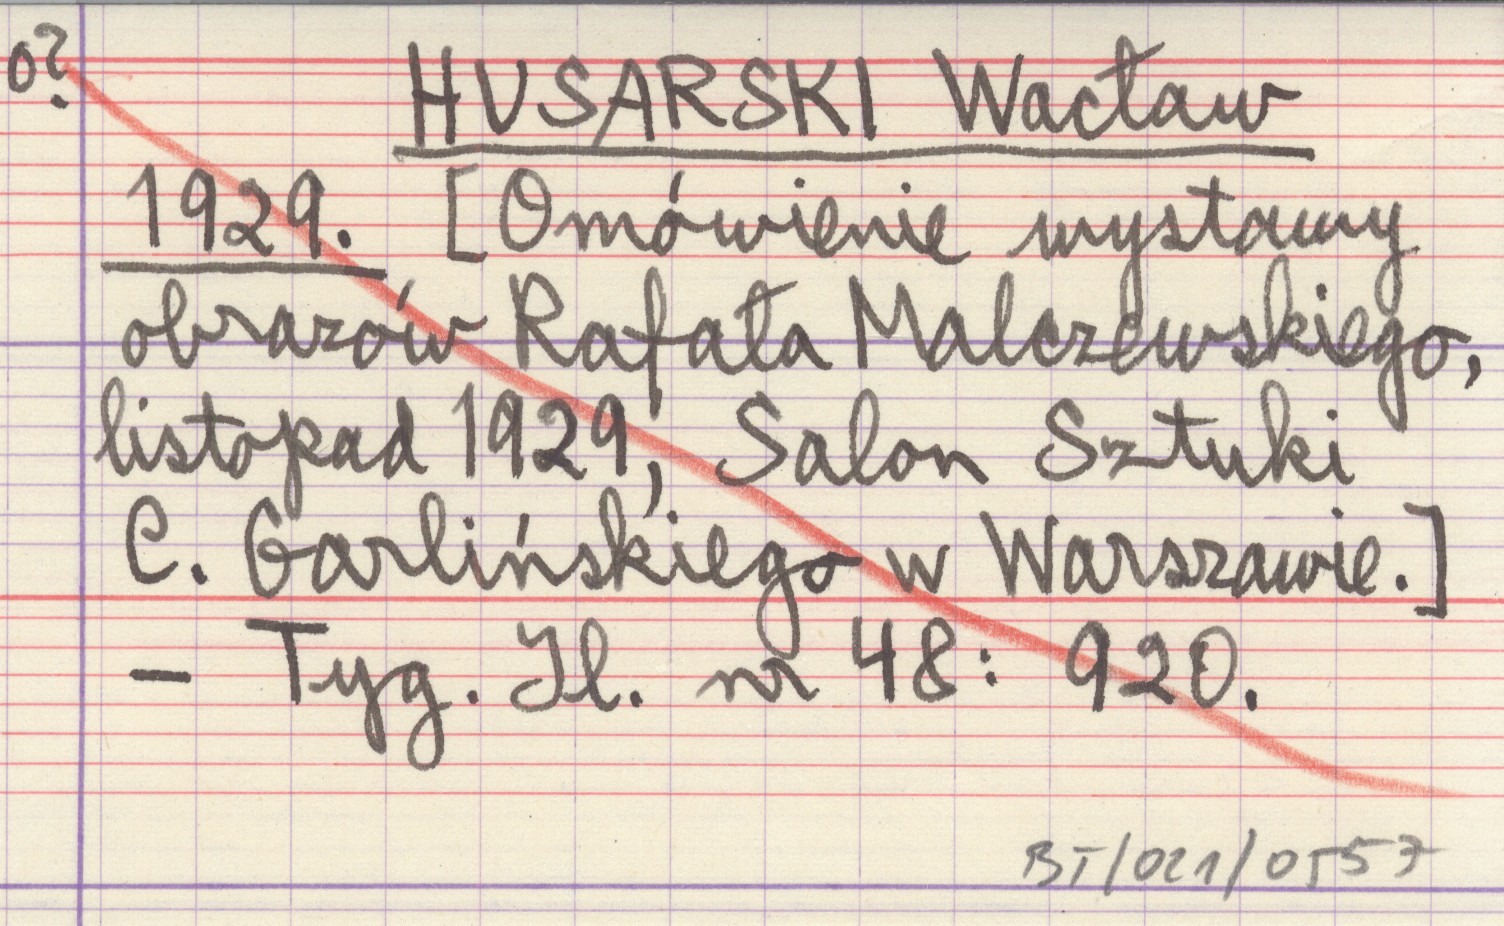 o?
HUSARSKI Wacław
1929. [Omówienie wystawy
obrazów Rafała Malczewskiego,
listopad 1929, Salon Sztuki
C. Garlińskiego w Warszawie.]
— Tyg. Il. nr 48: 920.
BT/021/0557